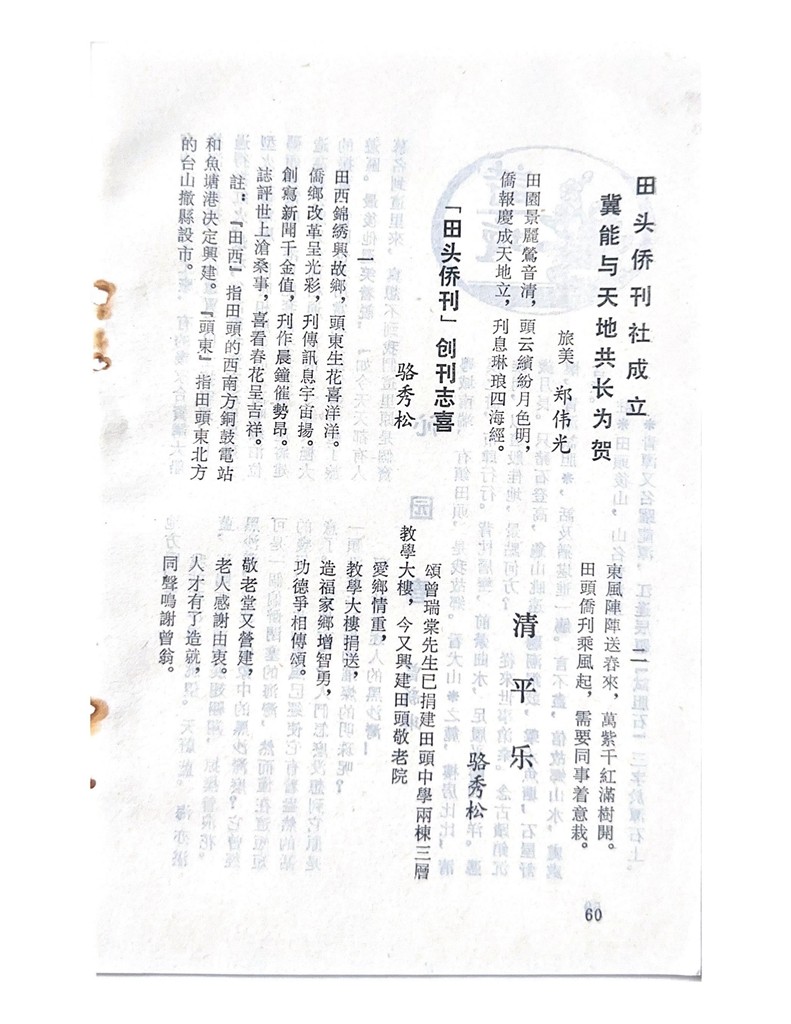 田头侨刊社成立
冀能与天地共长为贺
旅美 郑伟光
田園景麗鶯音清，頭云繽紛月色明，
僑報慶成天地立，刊息琳琅四海經。
「田头侨刊」创刊志喜
骆秀松
一
田西錦綉興故鄉，頭東生花喜洋洋。
僑鄉改革呈光彩，刊傳訊息宇宙揚。
創寫新聞千金值，刊作晨鐘催勢昂。
誌評世上滄桑事，喜看春花呈吉祥。
註：『田西』指田頭的西南方銅鼓電站
和魚塘港决定興建。『頭東』指田頭東北方
的台山撤縣設市。
二
東風陣陣送春來，萬紫千紅滿樹開。
田頭僑刊乘風起，需要同事着意栽。
清平乐
骆秀松
頌曾瑞棠先生已捐建田頭中學兩棟三層
教學大樓，今又興建田頭敬老院
愛鄉情重，
教學大樓捐送，
造福家鄉增智勇，
功德爭相傳頌。
敬老堂又營建，
老人感謝由衷。
人才有了造就，
同聲鳴謝曾翁。
60